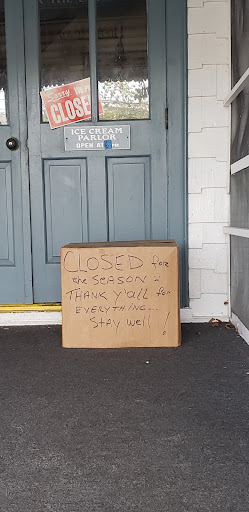 Sorry We're
CLOSED
ICE CREAM
PARLOR
OPEN AT PM
CLOSED for
the SEASON :
THANK Y'all for
EVERYTHING...
Stay well !